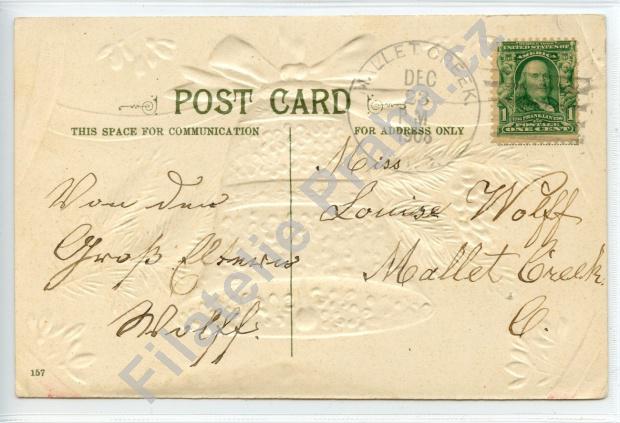 MALLET CREEK
DEC
AM
1908
UNITED STATES OF
AMERICA
1 1
POSTAGE
ONE CENT
POST CARD
THIS SPACE FOR COMMUNICATION
FOR ADDRESS ONLY
Von den
Groß Eltern
Wolff.
Miss
Louise Wolff
Mallet Creek.
O.
157
Filatelie Praha.cz